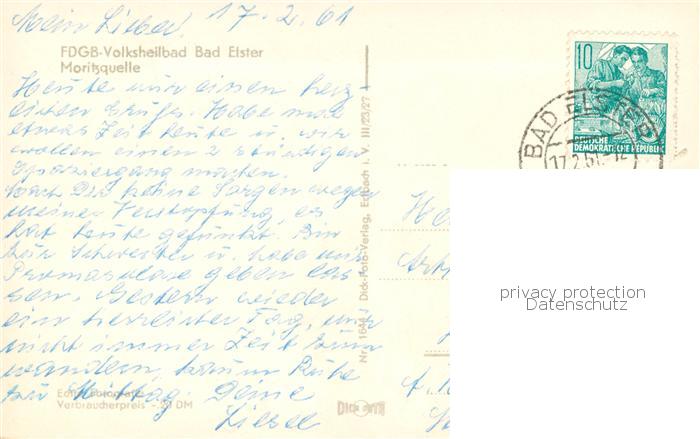 Mein Lieber, 17.2.61
FDGB-Volksheilbad Bad Elster
Moritzquelle
Heute nur einen herz-
lichen Gruß. Habe mal
etwas Zeit heute u. wir
wollen einen 2 stündigen
Spaziergang machen.
Mach Dir keine Sorgen wegen
meiner Verstopfung, es
hat heute gefunkt. Bin
zur Schwester u. habe mir
geben las-
sen. Gestern wieder
ein herrlicher Tag, nur
nicht immer Zeit zum
wandern, kaum Ruhe
zu Mittag. Deine
Liesel
Echte Fotografie
Verbraucherpreis -.20 DM
Nr. 1644 Dick-Foto-Verlag, Erlbach i. V. III/23/27
DICK FOTO
10
DEUTSCHE
DEMOKRATISCHE REPUBLIK
BAD ELSTER
17.2.61.-12
privacy protection
Datenschutz